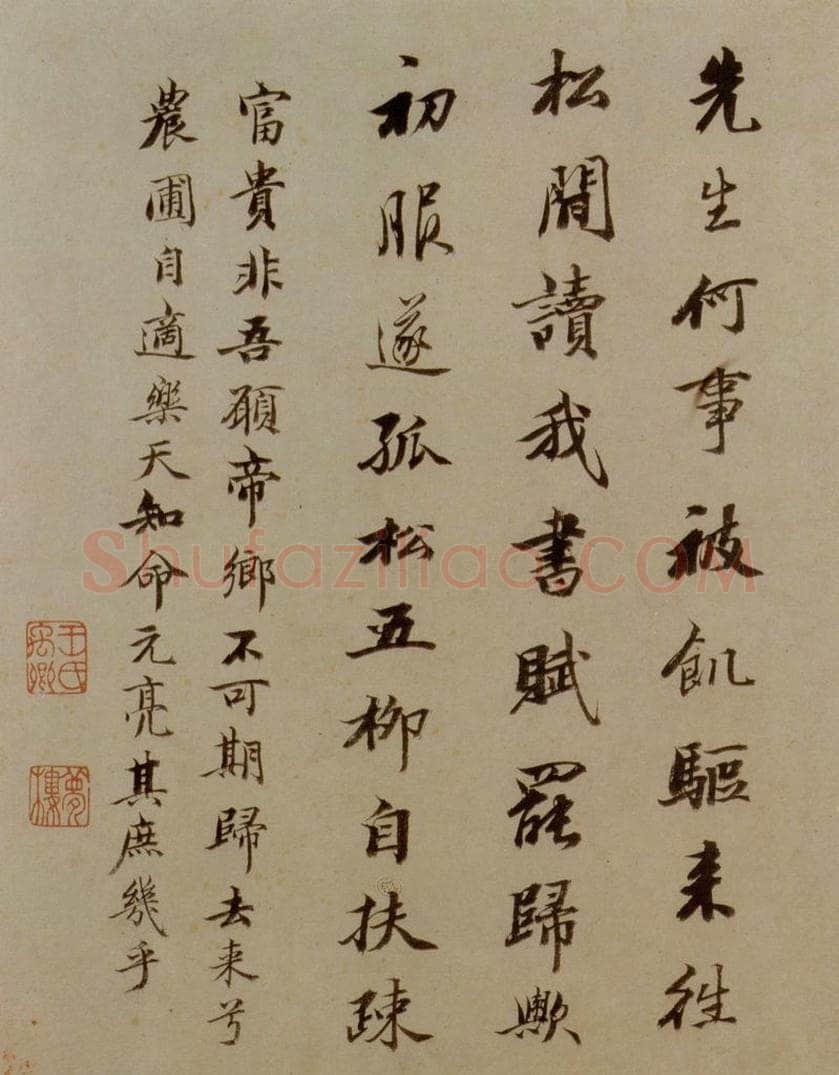 先生何事被飢驅来徃
松間讀我書賦罷歸歟
初服遂孤松五柳自扶疎
富貴非吾願帝鄉不可期歸去来兮
農圃自適樂天知命元亮其庶幾乎
王氏禹卿
夢樓
Shufaziliao.COM